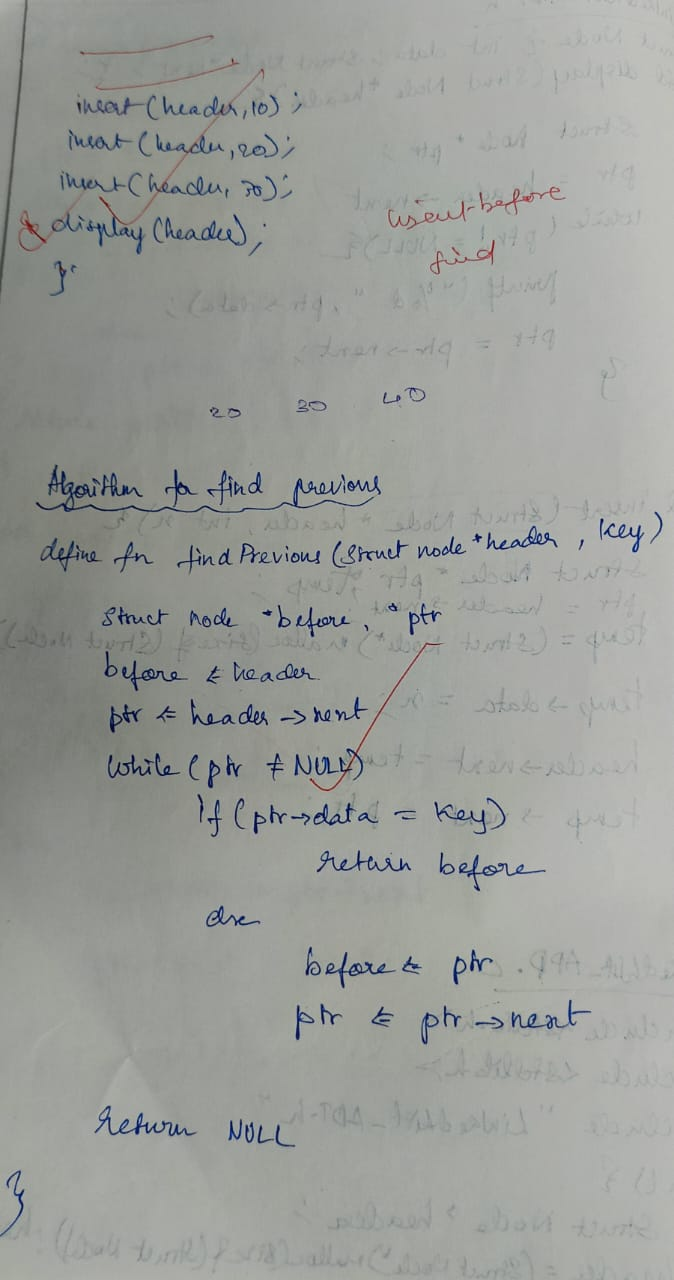 insert(header,10);
insert(header,20);
insert(header, 30);
display(header);
}
insert-before
find
20 30 40
Algorithm for find previous
define fn findPrevious(struct node *header, key)
struct node *before, *ptr
before ⇐ header
ptr ⇐ header → next
while(ptr ≠ NULL)
if(ptr→data = key)
return before
else
before ⇐ ptr
ptr ⇐ ptr → next
return NULL
}